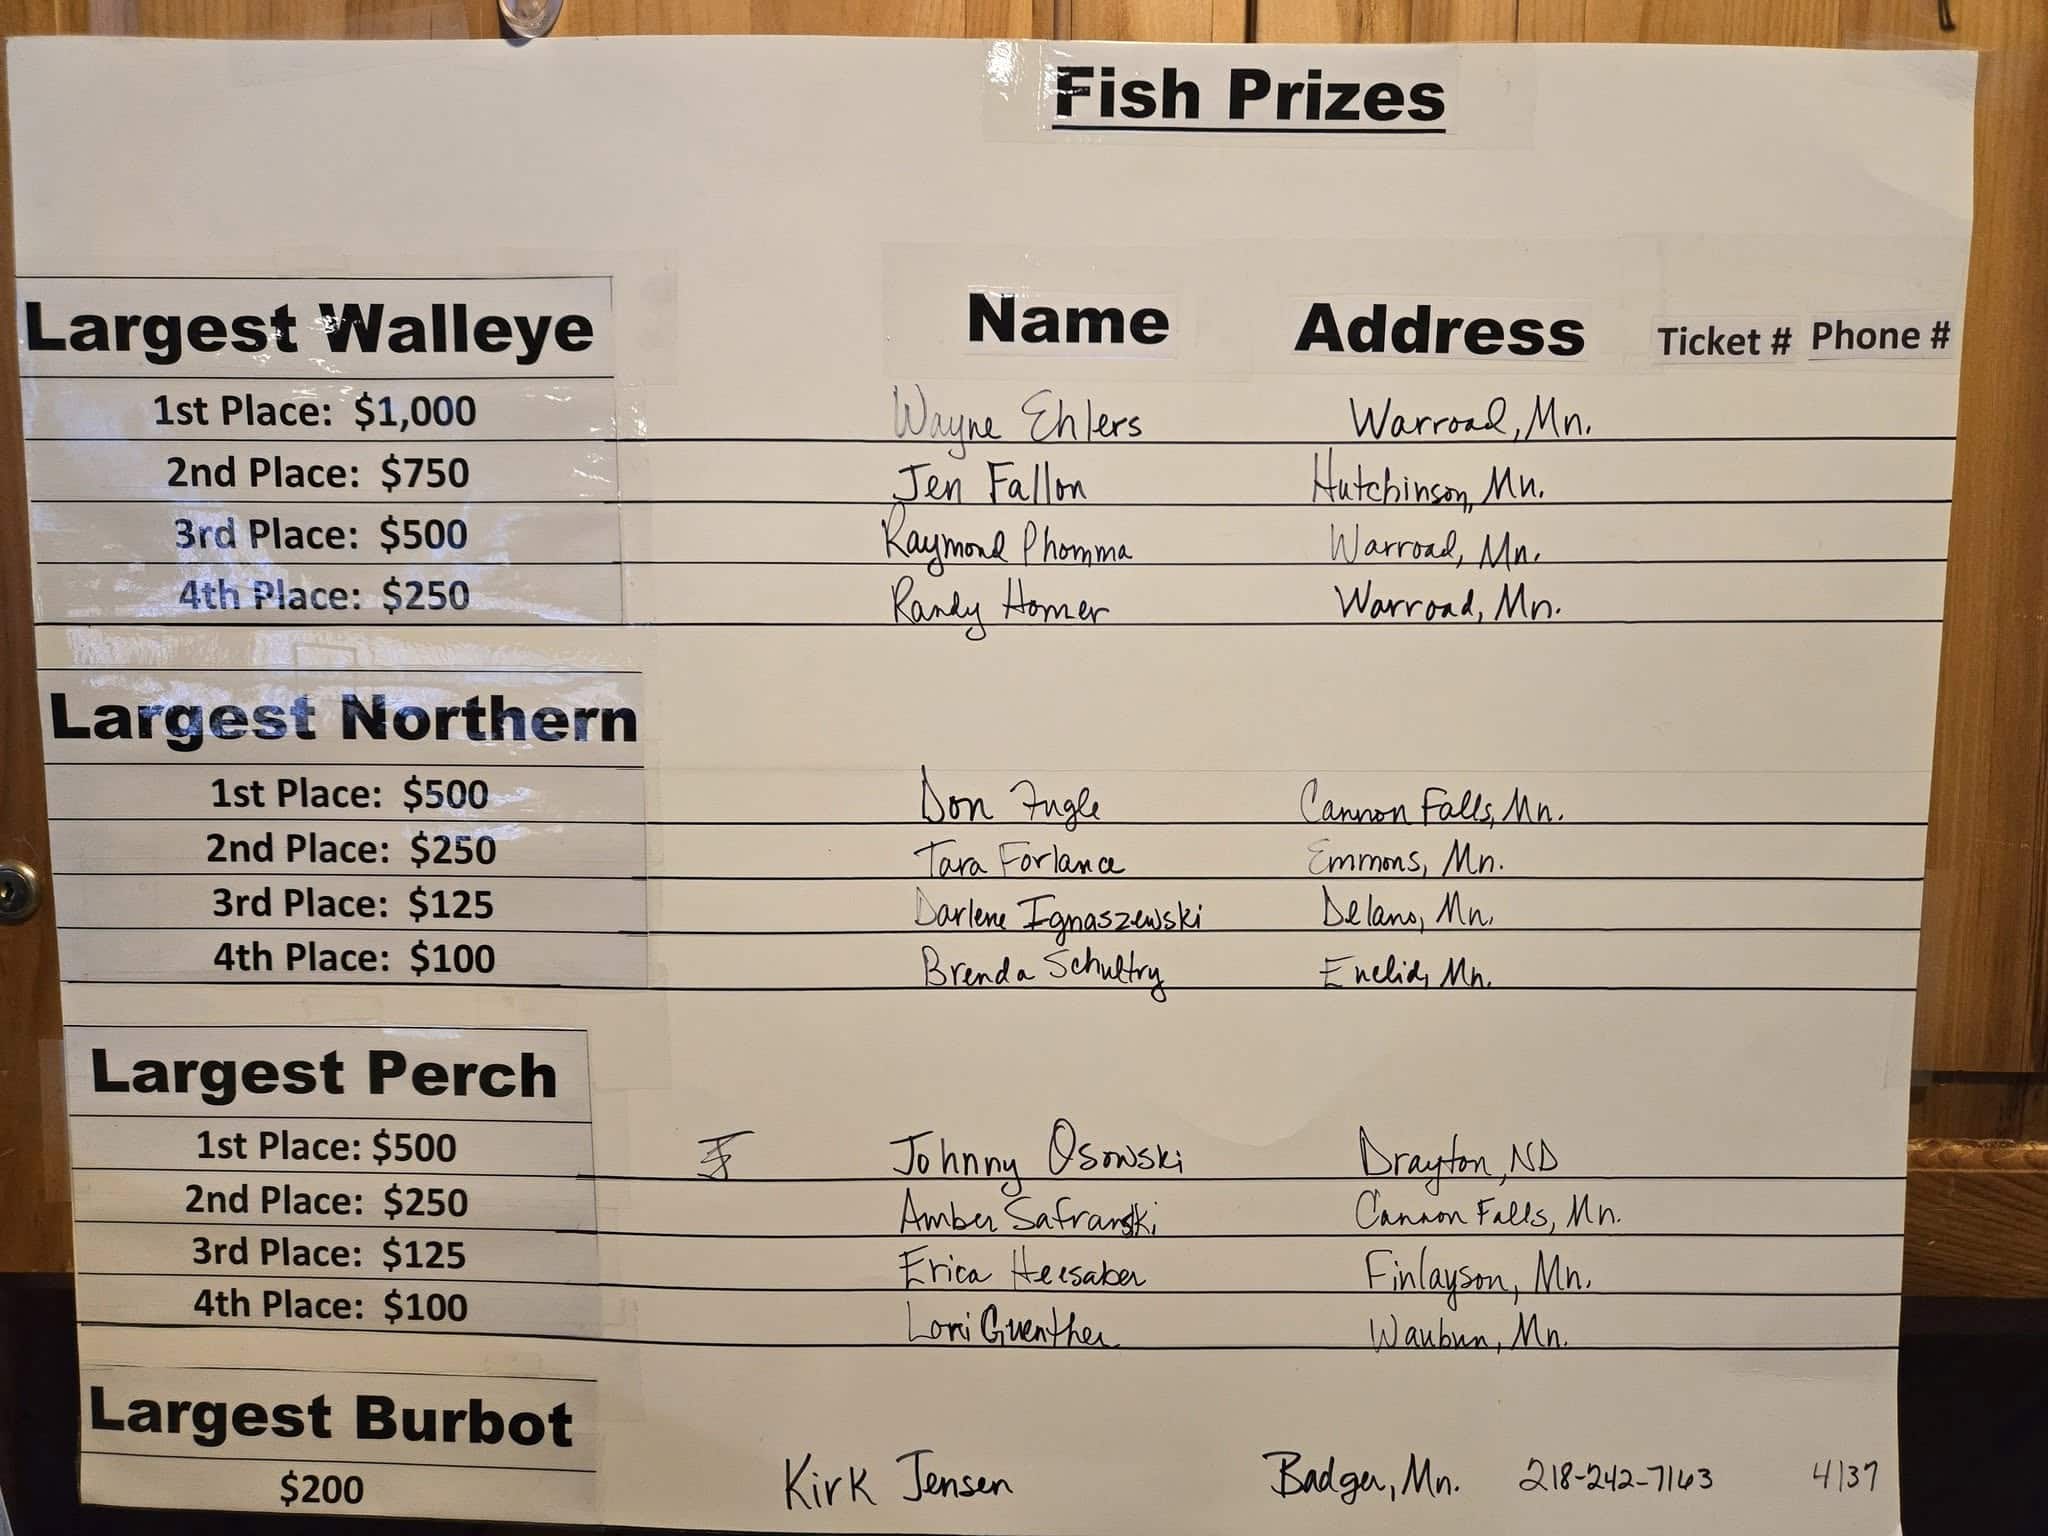 Fish Prizes
Largest Walleye Name Address Ticket # Phone #
1st Place: $1,000 Wayne Ehlers Warroad, Mn.
2nd Place: $750 Jen Fallon Hutchinson, Mn.
3rd Place: $500 Raymond Phomma Warroad, Mn.
4th Place: $250 Randy Homer Warroad, Mn.
Largest Northern
1st Place: $500 Don Fugle Cannon Falls, Mn.
2nd Place: $250 Tara Forland Emmons, Mn.
3rd Place: $125 Darlene Ignaszewski Delano, Mn.
4th Place: $100 Brenda Mn.
Largest Perch
1st Place: $500 Johnny Osowski Drayton, ND
2nd Place: $250 Amber Safranski Cannon Falls, Mn.
3rd Place: $125 Erica Finlayson, Mn.
4th Place: $100 Lori Guenther Waubun, Mn.
Largest Burbot
$200 Kirk Jensen Badger, Mn. 218-242-7163 4137